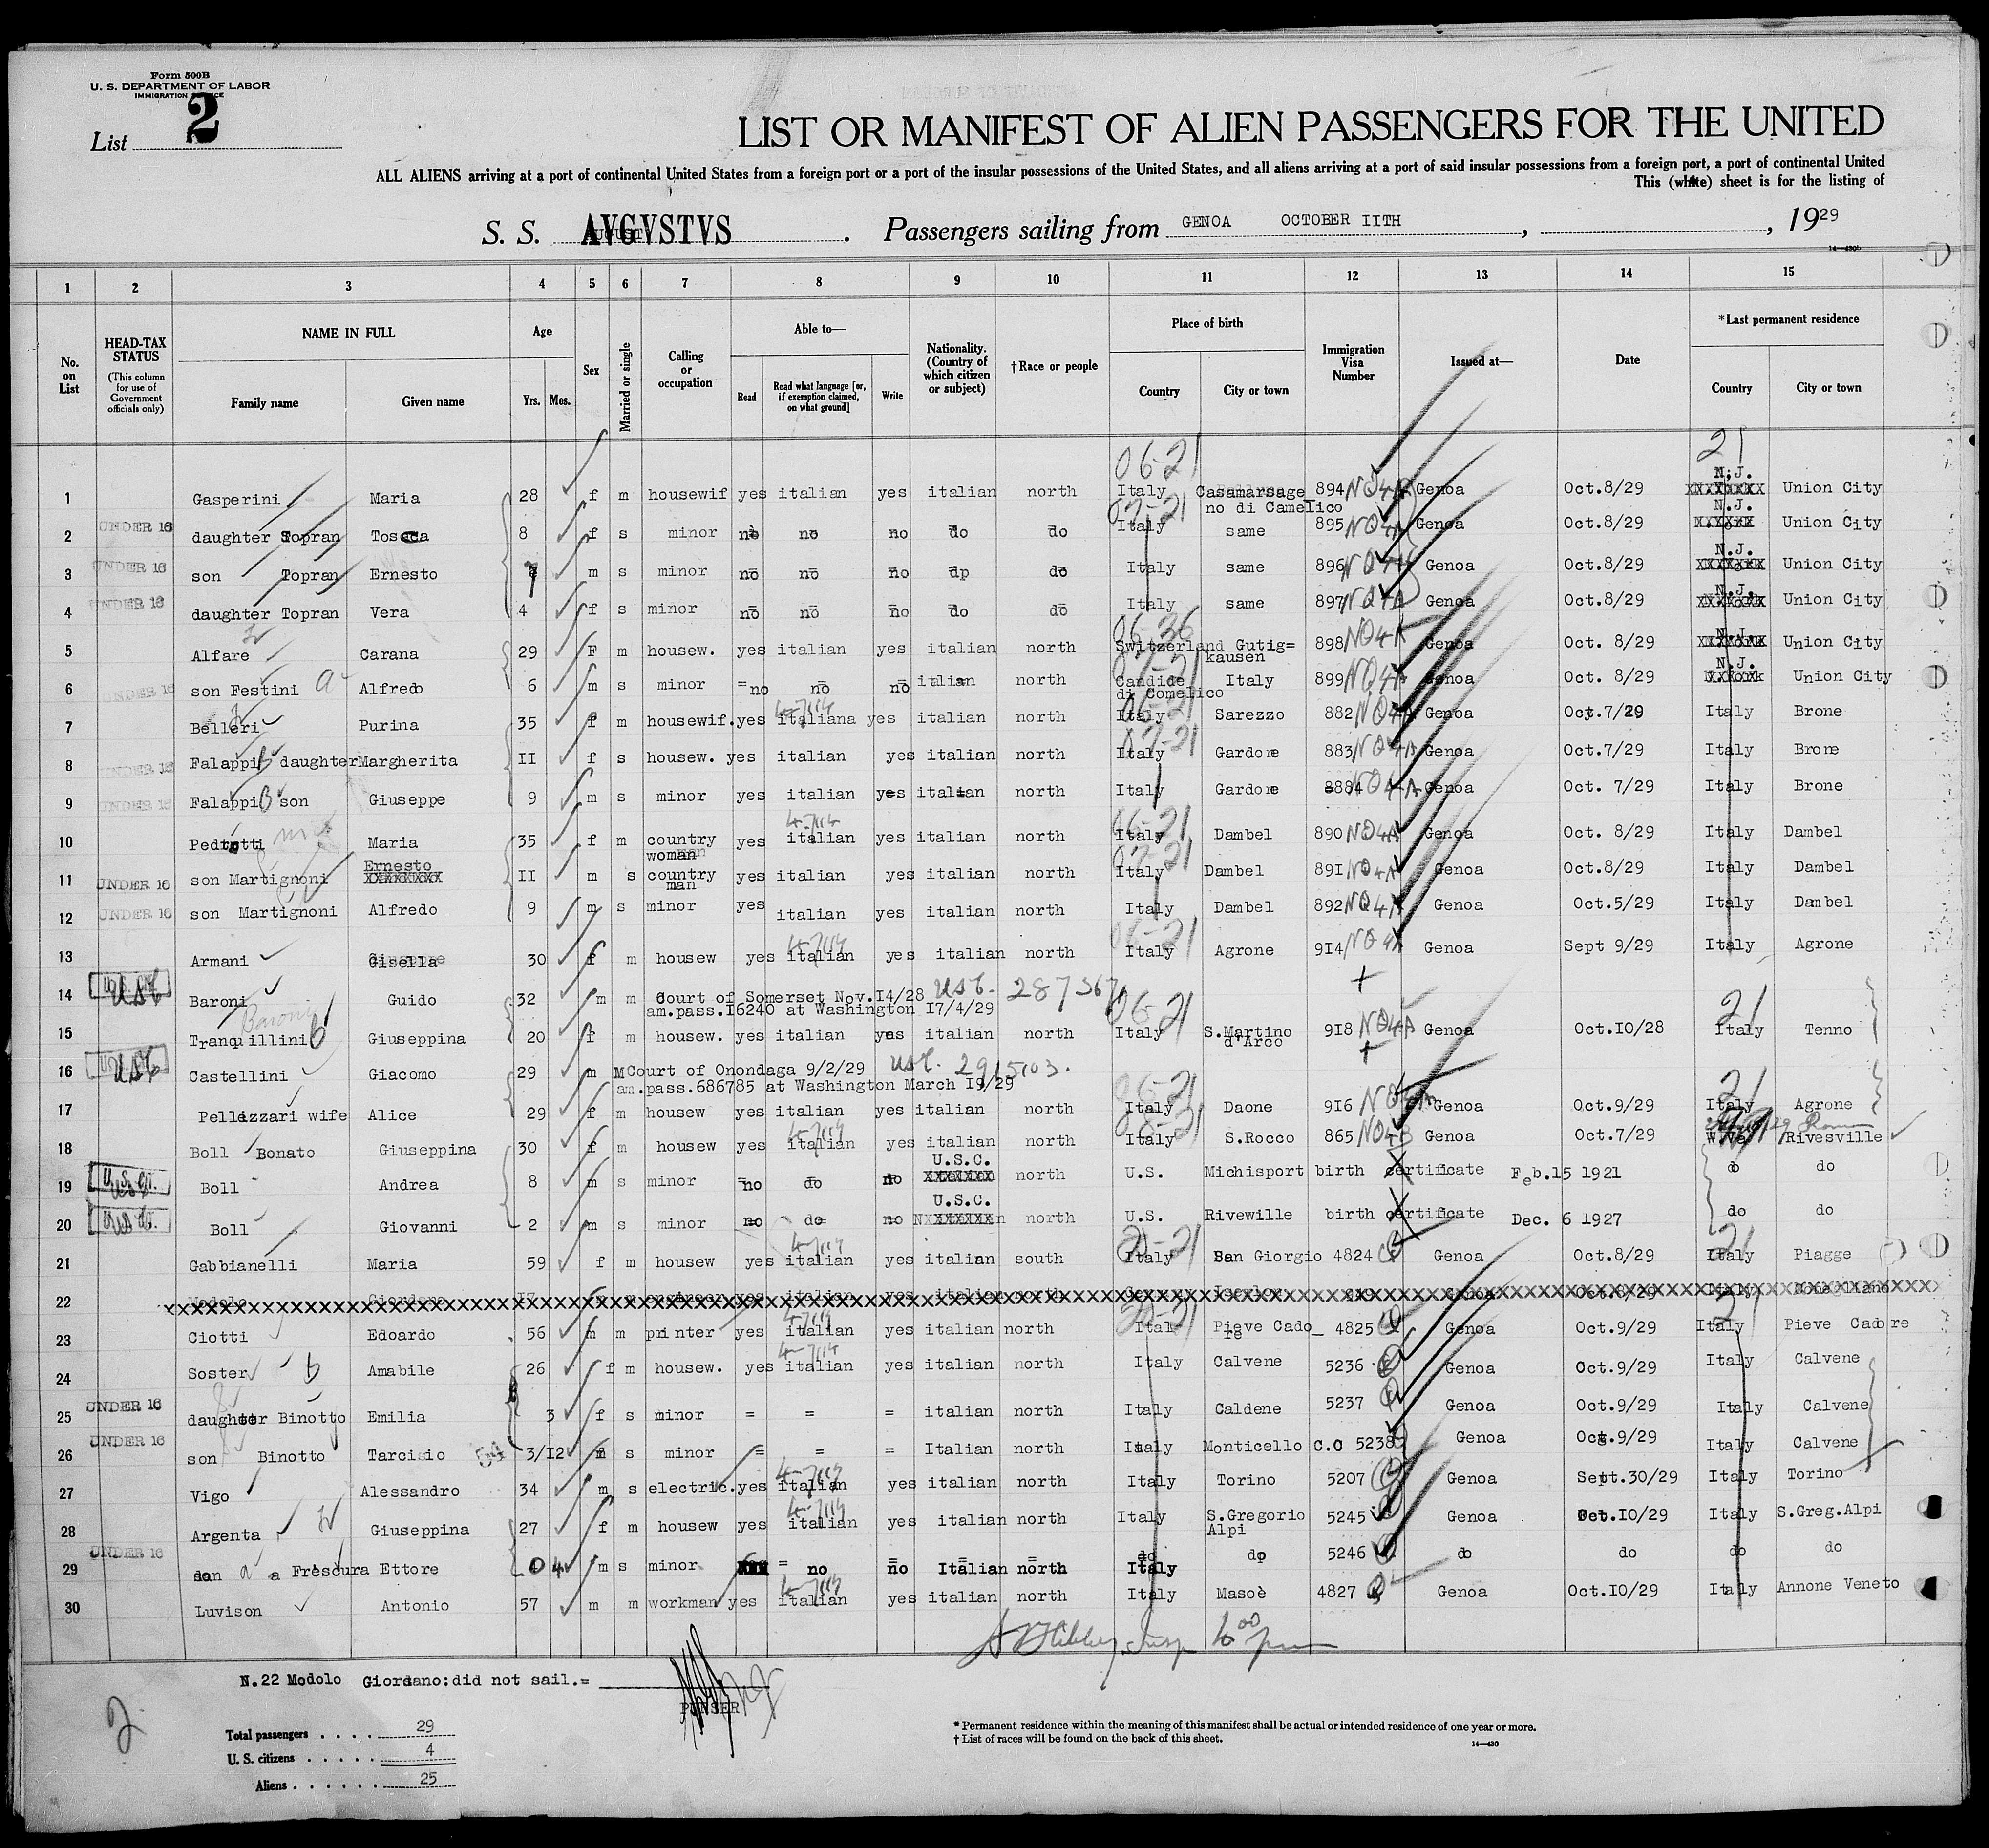 Form 500B
U. S. DEPARTMENT OF LABOR
IMMIGRATION
List 2
LIST OR MANIFEST OF ALIEN PASSENGERS FOR THE UNITED
ALL ALIENS arriving at a port of continental United States from a foreign port or a port of the insular possessions of the United States, and all aliens arriving at a port of said insular possessions from a foreign port, a port of continental United
This (white) sheet is for the listing of
S. S. AVGVSTVS. Passengers sailing from GENOA OCTOBER IITH, , 1929
14—430b
1 2 3 4 5 6 7 8 9 10 11 12 13 14 15
No. on List
HEAD-TAX STATUS (This column for use of Government officials only)
NAME IN FULL Family name Given name
Age Yrs. Mos.
Sex
Married or single
Calling or occupation
Able to— Read Read what language [or, if exemption claimed, on what ground] Write
Nationality. (Country of which citizen or subject)
†Race or people
Place of birth Country City or town
Immigration Visa Number
Issued at—
Date
*Last permanent residence Country City or town
06-21 21
1 Gasperini Maria 28 f m housewif yes italian yes italian north Italy Casamarsage no di Camelico 894 NQ4A Genoa Oct.8/29 N.J. Union City
2 UNDER 16 daughter Topran Tosca 8 f s minor no no no do do Italy same 895 NQ4A Genoa Oct.8/29 N.J. Union City
3 UNDER 16 son Topran Ernesto 7 m s minor no no no dp do Italy same 896 NQ4A Genoa Oct.8/29 N.J. Union City
4 UNDER 16 daughter Topran Vera 4 f s minor no no no do do Italy same 897 NQ4A Genoa Oct.8/29 N.J. Union City
5 Alfare Carana 29 F m housew. yes italian yes italian north 06-36 Switzerland Gutig= kausen 898 NQ4A Genoa Oct. 8/29 N.J. Union City
6 UNDER 16 son Festini a Alfredo 6 m s minor =no no no italian north Candide di Comelico Italy 899 NQ4A Genoa Oct. 8/29 N.J. Union City
7 Belleri Purina 35 f m housewif. yes italiana yes italian north 06-21 Italy Sarezzo 882 NQ4A Genoa Oct.7/29 Italy Brone
8 UNDER 16 Falappi B daughter Margherita II f s housew. yes italian yes italian north 07-21 Italy Gardone 883 NQ4A Genoa Oct.7/29 Italy Brone
9 UNDER 16 Falappi B son Giuseppe 9 m s minor yes italian yes italian north Italy Gardone 884 NQ4A Genoa Oct. 7/29 Italy Brone
10 Pedrotti Maria 35 f m country woman yes italian yes italian north 06-21 Italy Dambel 890 NQ4A Genoa Oct. 8/29 Italy Dambel
11 UNDER 16 son Martignoni Ernesto II m s country man yes italian yes italian north 07-21 Italy Dambel 89I NQ4A Genoa Oct.8/29 Italy Dambel
12 UNDER 16 son Martignoni Alfredo 9 m s minor yes italian yes italian north Italy Dambel 892 NQ4A Genoa Oct.5/29 Italy Dambel
13 Armani Gisella 30 f m housew yes italian yes italian north 06-21 Italy Agrone 9I4 NQ4A Genoa Sept 9/29 Italy Agrone
14 USC Baroni Guido 32 m m Court of Somerset Nov.I4/28 USC. 287367
am.pass.I6240 at Washington I7/4/29
15 Tranquillini b Giuseppina 20 f m housew. yes italian yes italian north 06-21 Italy S.Martino d'Arco 9I8 NQ4A Genoa Oct.IO/28 21 Italy Tenno
16 USC Castellini Giacomo 29 m M Court of Onondaga 9/2/29 USC. 2915103.
am.pass.686785 at Washington March I9/29
17 Pellizzari wife Alice 29 f m housew yes italian yes italian north 06-21 Italy Daone 9I6 Genoa Oct.9/29 21 Italy Agrone
18 Boll Bonato Giuseppina 30 f m housew yes italian yes italian north Italy S.Rocco 865 NQ4B Genoa Oct.7/29 W.Ve Rivesville
19 U.S.Cit. Boll Andrea 8 m s minor =no do no U.S.C. north U.S. Michisport birth certificate Feb.15 1921 do do
20 Boll Giovanni 2 m s minor no do= no U.S.C. north U.S. Rivewille birth certificate Dec. 6 1927 do do
21 Gabbianelli Maria 59 f m housew yes italian yes italian south 21-21 Italy San Giorgio 4824 Genoa Oct.8/29 21 Italy Piagge
22 Modolo Giordano
23 Ciotti Edoardo 56 m m printer yes italian yes italian north Italy Pieve Cado_ re 4825 Genoa Oct.9/29 Italy Pieve Cadore
24 Soster b Amabile 26 f m housew. yes italian yes italian north Italy Calvene 5236 Genoa Oct.9/29 Italy Calvene
25 UNDER 16 daughter Binotto Emilia 3 f s minor = = = italian north Italy Caldene 5237 Genoa Oct.9/29 Italy Calvene
26 UNDER 16 son Binotto Tarcisio 3/I2 m s minor = = = Italian north Italy Monticello C.O 5238 Genoa Oct.9/29 Italy Calvene
27 Vigo Alessandro 34 m s electric. yes italian yes italian north Italy Torino 5207 Genoa Sept.30/29 Italy Torino
28 Argenta Giuseppina 27 f m housew yes italian yes italian north Italy S.Gregorio Alpi 5245 Genoa Oct.IO/29 Italy S.Greg.Alpi
29 UNDER 16 son a Frescura Ettore 0 4 m s minor = no no Italian north do Italy do 5246 do do do do
30 Luvison Antonio 57 m m workman yes italian yes italian north Italy Masoè 4827 Genoa Oct.IO/29 Italy Annone Veneto
N.22 Modolo Giordano:did not sail.=
PURSER
2
Total passengers . . . . 29
U. S. citizens . . . . . 4
Aliens . . . . . . 25
* Permanent residence within the meaning of this manifest shall be actual or intended residence of one year or more.
† List of races will be found on the back of this sheet.
14—430